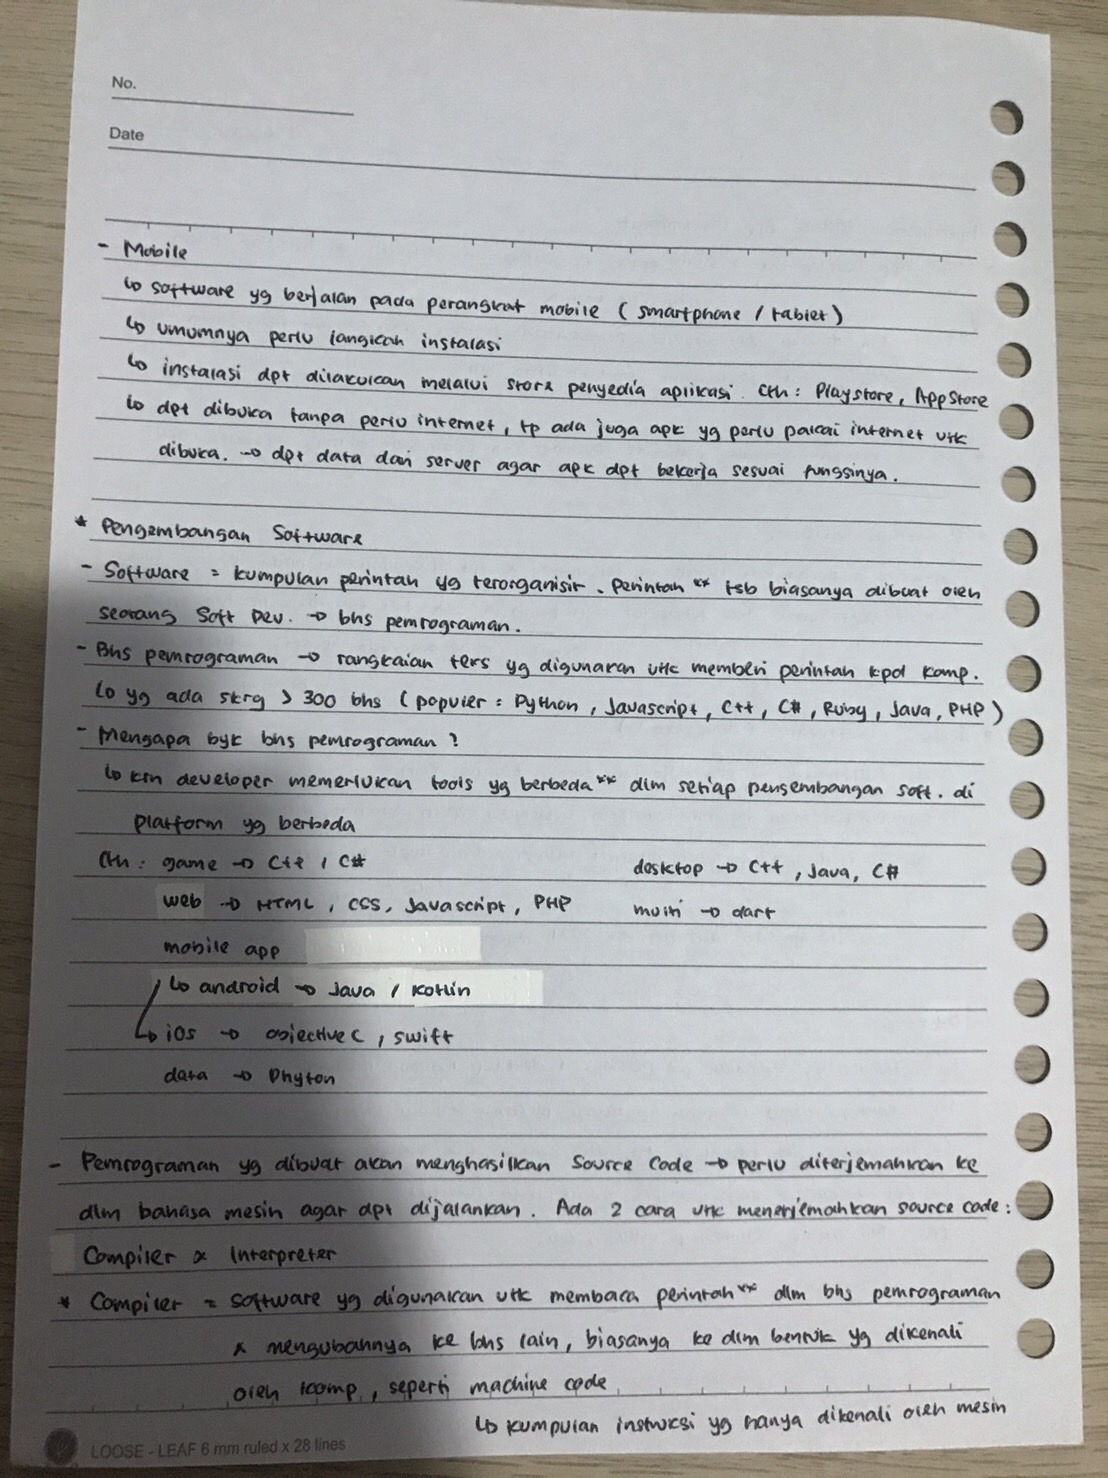 No.
Date
- Mobile
↳ software yg berjalan pada perangkat mobile ( smartphone / tablet )
↳ umumnya perlu langkah instalasi
↳ instalasi dpt dilakukan melalui store penyedia aplikasi. Cth : Playstore, AppStore
↳ dpt dibuka tanpa perlu internet, tp ada juga apk yg perlu pakai internet utk
dibuka. → dpt data dari server agar apk dpt bekerja sesuai fungsinya.
* Pengembangan Software
- Software = kumpulan perintah yg terorganisir. Perintah ** tsb biasanya dibuat oleh
seorang Soft Dev. → bhs pemrograman.
- Bhs pemrograman → rangkaian teks yg digunakan utk memberi perintah kpd komp.
↳ yg ada skrg > 300 bhs ( populer : Python, Javascript, C++, C#, Ruby, Java, PHP )
- Mengapa byk bhs pemrograman ?
↳ krn developer memerlukan tools yg berbeda ** dlm setiap pengembangan soft. di
platform yg berbeda
Cth : game → C++ / C# desktop → C++, Java, C#
web → HTML, CSS, Javascript, PHP multi → dart
mobile app
↳ android → Java / Kotlin
↳ iOS → objective C, swift
data → Phyton
- Pemrograman yg dibuat akan menghasilkan Source Code → perlu diterjemahkan ke
dlm bahasa mesin agar dpt dijalankan. Ada 2 cara utk menerjemahkan source code :
Compiler & Interpreter
* Compiler = software yg digunakan utk membaca perintah ** dlm bhs pemrograman
& mengubahnya ke bhs lain, biasanya ke dlm bentuk yg dikenali
oleh komp, seperti machine code
↳ kumpulan instruksi yg hanya dikenali oleh mesin
LOOSE - LEAF 6 mm ruled x 28 lines